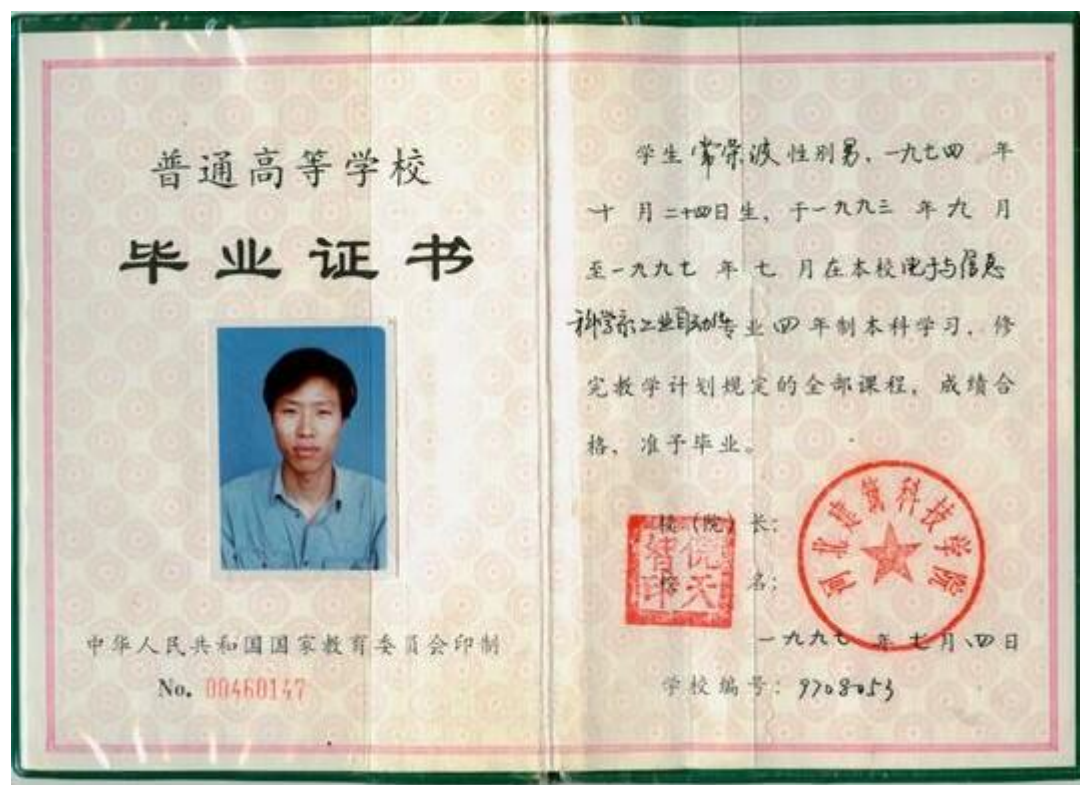 普通高等学校
毕业证书
中华人民共和国国家教育委员会印制
No. 00460147
学生常荣波性别男，一九七四 年
十 月二十四日生，于一九九三 年九 月
至一九九七 年 七 月在本校电子与信息
科学系工业自动化专业四年制本科学习，修
完教学计划规定的全部课程，成绩合
格，准予毕业。
校（院）长：
校 名：
河北建筑科技学院
一九九七 年七月四日
学校编号：9708053